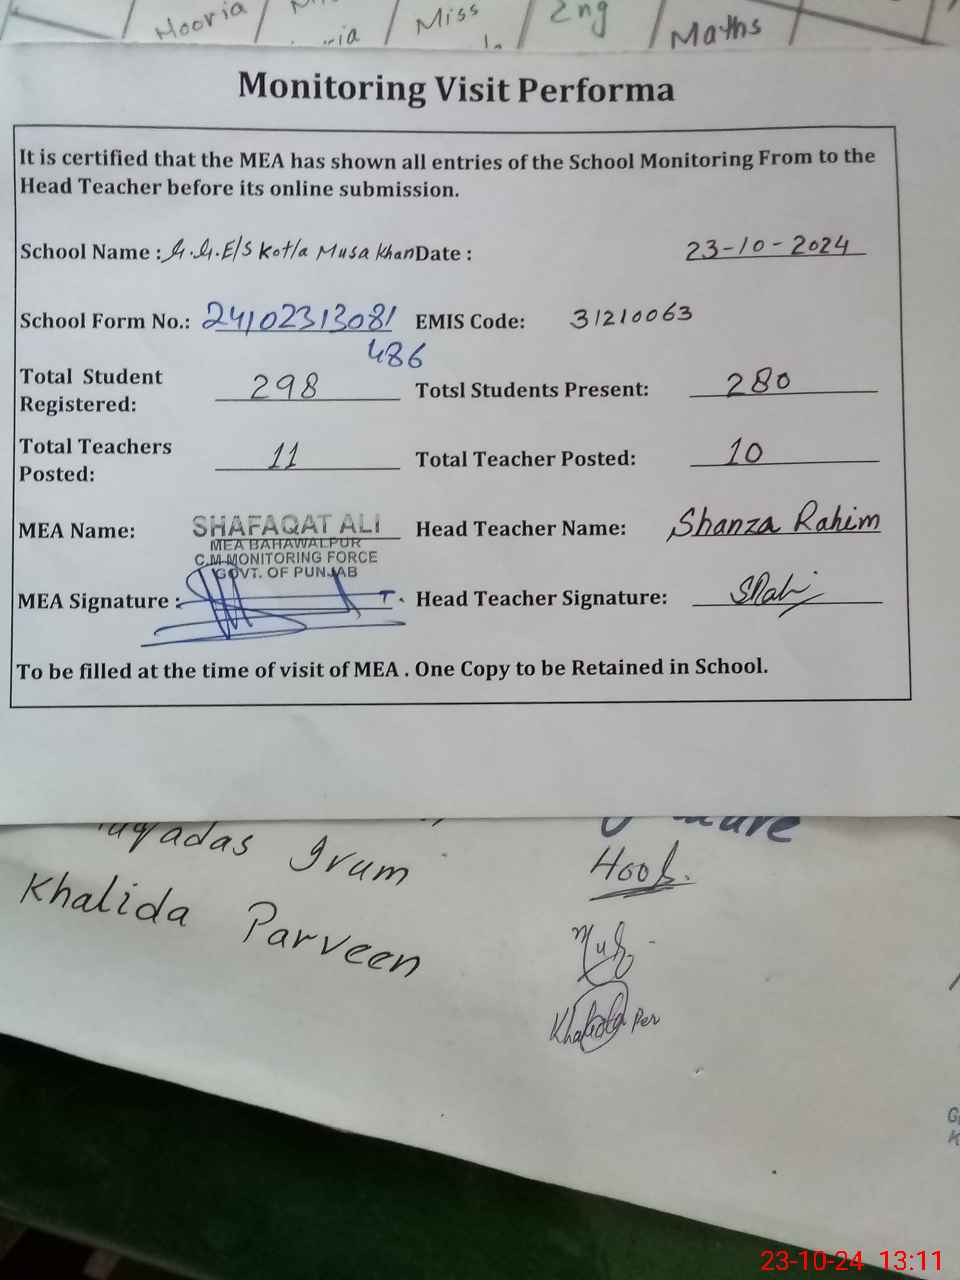 Hooria Miss Eng Maths
Monitoring Visit Performa
It is certified that the MEA has shown all entries of the School Monitoring From to the
Head Teacher before its online submission.
School Name : G.G.E/S Kotla Musa Khan Date : 23-10-2024
School Form No.: 24102313081 EMIS Code: 31210063
486
Total Student Registered: 298 Totsl Students Present: 280
Total Teachers Posted: 11 Total Teacher Posted: 10
MEA Name: SHAFAQAT ALI Head Teacher Name: Shanza Rahim
MEA BAHAWALPUR
C.M MONITORING FORCE
GOVT. OF PUNJAB
MEA Signature : Head Teacher Signature:
To be filled at the time of visit of MEA . One Copy to be Retained in School.
Irum
Khalida Parveen
23-10-24 13:11